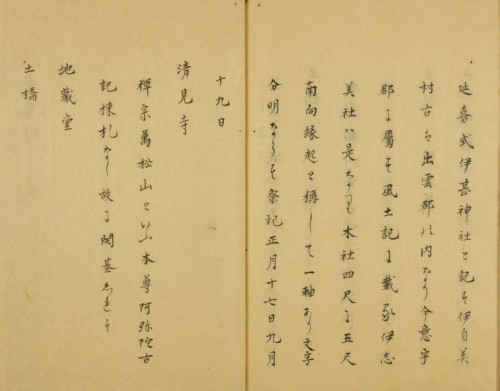 延喜式伊甚神社と記す伊自美
村古は出雲郡の内なり今意宇
郡に属す風土記に載る伊志
美社ハ是なり本社四尺に五尺
南向縁起と稱して一軸あり文字
分明ならす祭祀正月十七日九月
十九日
清見寺
禪宗萬松山といふ本尊阿弥陀古
記棟札なし故に開基しれす
地藏堂
土橋